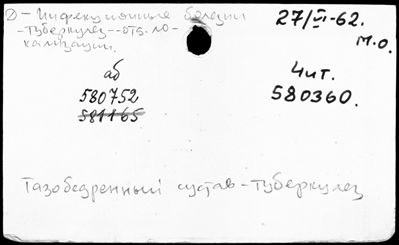 ② - Инфекционные болезни
- туберкулез - отд. ло-
кализации.
27/VI-62.
М.О.
аб
580752
581165
Чит.
580360.
Тазобедренный сустав - туберкулез